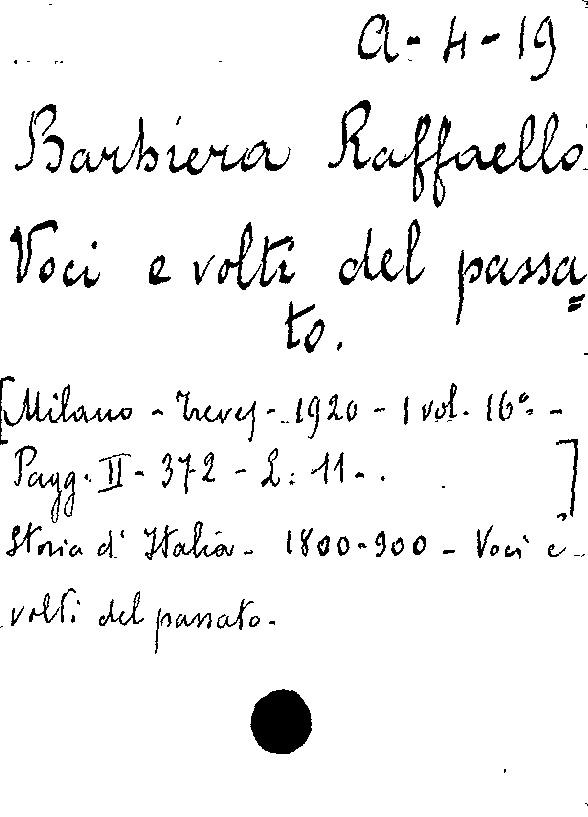 A - 4 - 19
Barbiera Raffaello
Voci e volti del passa=
to.
[Milano - Treves - 1920 - 1 vol. 16° -
Pagg. II - 372 - L: 11 - . ]
Storia d' Italia - 1800-900 - Voci e
volti del passato.